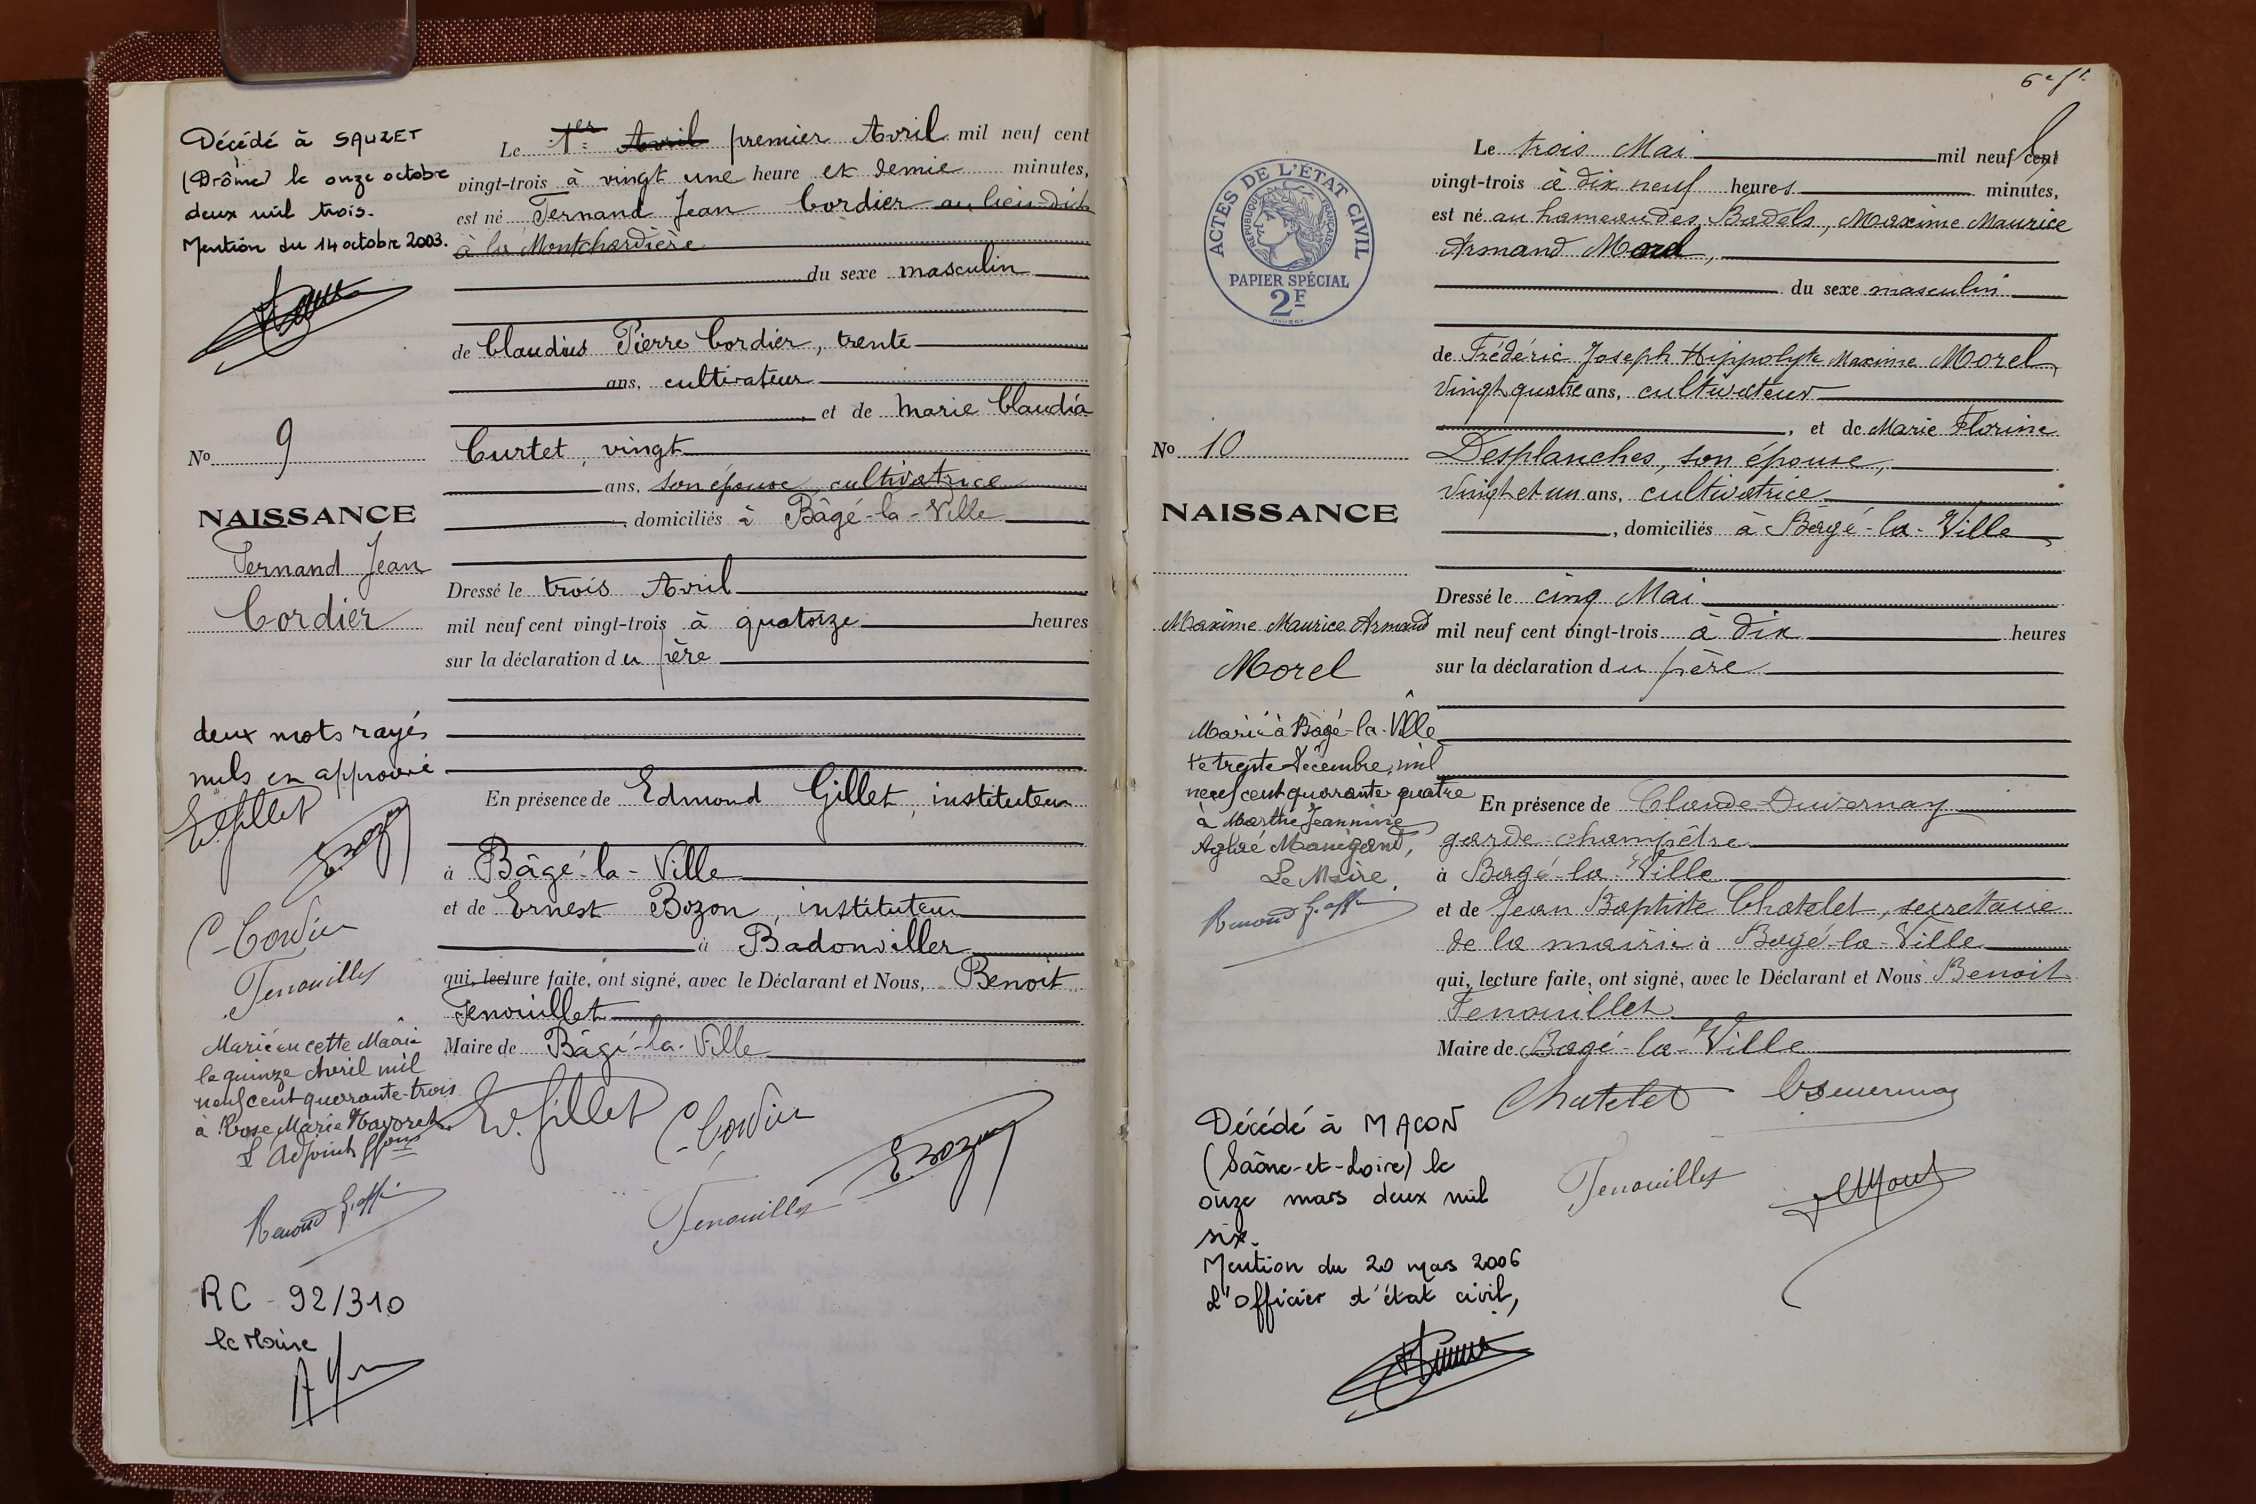 Décédé à SAUZET
(Drôme) le onze octobre
deux mil trois.
Mention du 14 octobre 2003.
No 9
NAISSANCE
Fernand Jean
Cordier
deux mots rayés
nuls
E. Gillet
E. Bozon
C. Cordier
Fenouillet
Marié en cette Mairie
le quinze Avril mil
neuf cent quarante-trois
à Rose Marie
L'Adjoint
RC - 92/310
le Maire
Le 1er Avril premier Avril mil neuf cent
vingt-trois à vingt une heure et demie minutes,
est né Fernand Jean Cordier au lieu-dit
à la Montchardière
du sexe masculin
de Claudius Pierre Cordier, trente
ans, cultivateur
, et de Marie Claudia
Curtet, vingt
ans, son épouse, cultivatrice
, domiciliés à Bâgé-la-Ville
Dressé le trois Avril
mil neuf cent vingt-trois à quatorze heures
sur la déclaration du père
En présence de Edmond Gillet, instituteur
à Bâgé-la-Ville
et de Ernest Bozon, instituteur
à Badonviller
qui, lecture faite, ont signé, avec le Déclarant et Nous, Benoit
Fenouillet
Maire de Bâgé-la-Ville
E. Gillet
C. Cordier
E. Bozon
Fenouillet
ACTES DE L'ÉTAT CIVIL
RÉPUBLIQUE FRANÇAISE
PAPIER SPÉCIAL
2F
No 10
NAISSANCE
Maxime Maurice Armand
Morel
Marié à Bâgé-la-Ville
le trente Décembre mil
neuf cent quarante quatre
à Marthe Jeannine
Aglaé Manigand,
Le Maire,
Décédé à MACON
(Saône-et-Loire) le
onze mars deux mil
six.
Mention du 20 mars 2006
L'officier d'état civil,
Le trois Mai mil neuf cent
vingt-trois à dix neuf heures minutes,
est né au hameau des Badels, Maxime Maurice
Armand Morel,
du sexe masculin
de Frédéric Joseph Hippolyte Maxime Morel,
vingt quatre ans, cultivateur
, et de Marie Florine
Desplanches, son épouse,
vingt et un ans, cultivatrice
, domiciliés à Bâgé-la-Ville
Dressé le cinq Mai
mil neuf cent vingt-trois à dix heures
sur la déclaration du père
En présence de Claude Duvernay
garde champêtre
à Bagé-la-Ville
et de Jean Baptiste Chatelet, secrétaire
de la mairie à Bagé-la-Ville
qui, lecture faite, ont signé, avec le Déclarant et Nous Benoit
Fenouillet
Maire de Bagé-la-Ville
Chatelet
Fenouillet